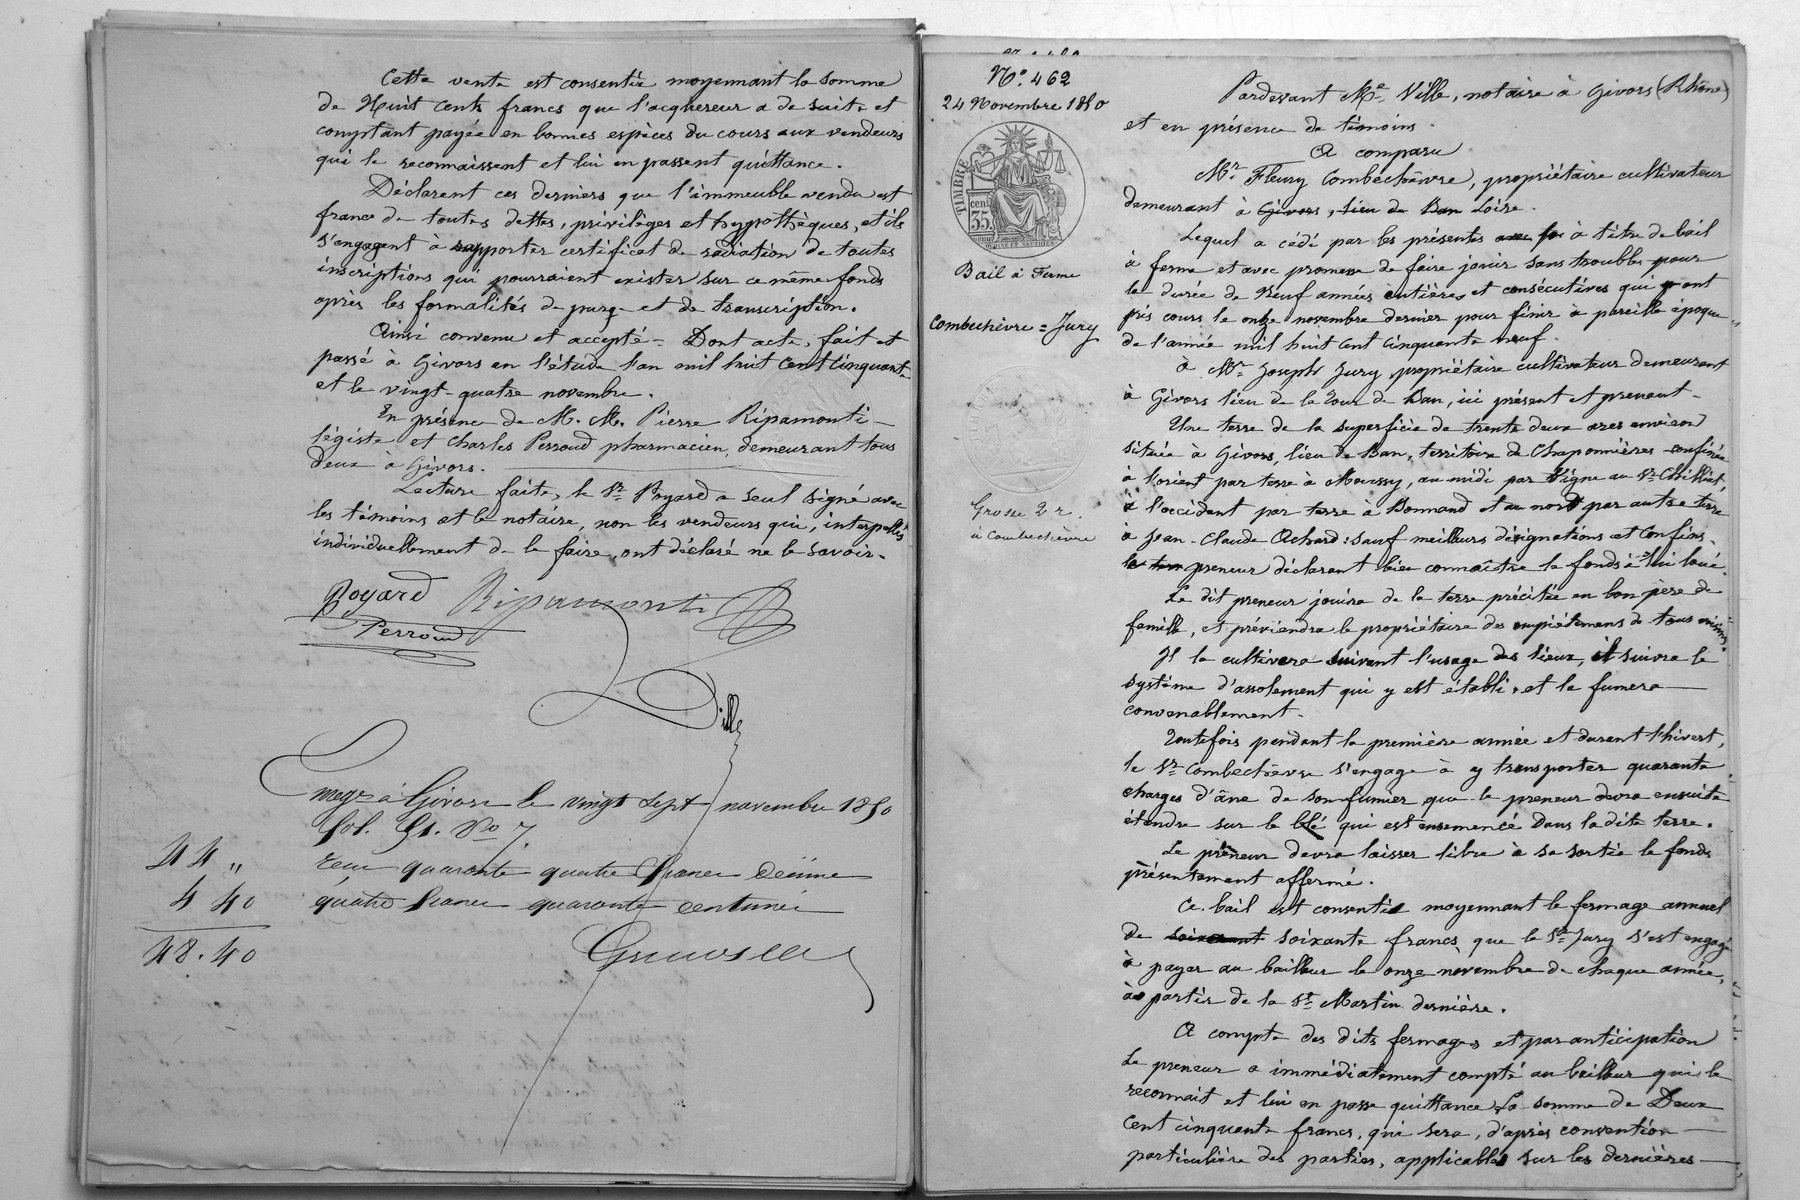 Cette vente est consentie moyennant la somme
de Huit cents francs que l'acquereur a de suite et
comptant payée en bonnes espèces du cours aux vendeurs
qui le reconnaissent et lui en passent quittance.
Déclarent ces derniers que l'immeuble vendu est
franc de toutes dettes, privilèges et hyppothèques, et ils
s'engagent à rapporter certificat de radiation de toutes
inscriptions qui pourraient exister sur ce même fonds
après les formalités de purge et de transcription.
Ainsi convenu et accepté = Dont acte, fait et
passé à Givors en l'étude l'an mil huit cent cinquante
et le vingt-quatre novembre.
En présence de M. M. Pierre Ripamonti
légiste et Charles Perroud pharmacien, demeurant tous
deux à Givors.
Lecture faite, le Sr Poyard a seul signé avec
les témoins et le notaire, non les vendeurs qui, interpellés
individuellement de le faire, ont déclaré ne le savoir.
Poyard Ripamonti
Perroud
Ville
Enregé à Givors le vingt sept novembre 1850
fol. 51. Vo 7.
44 "
reçu quarante quatre francs décime
4 40
quatre francs quarante centimes
48.40
No. 462
24 Novembre 1850
TIMBRE
cent
35
Bail à Ferme
Combechèvre = Jury
Grosse 2 r.
à Combechèvre
Pardevant Me Ville, notaire à Givors (Rhône)
et en présence de témoins.
A comparu
Mr. Fleury Combechèvre, propriétaire cultivateur
demeurant à Givors, lieu de Ban Loire.
Lequel a cédé par les présentes à titre de bail
à ferme et avec promesse de faire jouir sans troubles pour
la durée de Neuf années entières et consécutives qui ont
pris cours le onze novembre dernier pour finir à pareille époque
de l'année mil huit cent cinquante neuf.
à Mr. Joseph Jury, propriétaire cultivateur demeurant
à Givors lieu de la Tour de Ban, ici présent et prenant.
Une terre de la superficie de trente deux ares environ
située à Givors, lieu de Ban, territoire de Chaponnières confinée
à l'orient par terre à Moussy, au midi par Vigne au Sr Chilliet,
à l'occident par terre à Bonnand et au nord par autre terre
à Jean-Claude Achard: sauf meilleurs désignations et confins.
le preneur déclarant bien connaître le fonds à lui loué.
Le dit preneur jouira de la terre précitée en bon père de
famille, et préviendra le propriétaire des empiétemens de tous voisins.
Il la cultivera suivant l'usage des lieux, et suivra le
système d'assolement qui y est établi, et la fumera
convenablement.
Toutefois pendant la première année et durant l'hivert,
le Sr Combechèvre s'engage à y transporter quarante
charges d'âne de son fumier que le preneur devra ensuite
étendre sur le blé qui est ensemencé dans la dite terre.
Le prêneur devra laisser libre à sa sortie le fonds
présentement affermé.
Ce bail est consentie moyennant le fermage annuel
de soixant soixante francs que le Sr Jury s'est engagé
à payer au bailleur le onze novembre de chaque année,
à partir de la St Martin dernière.
A compte des dits fermages et par anticipation
Le preneur a immédiatement compté au bailleur qui le
reconnait et lui en passe quittance la somme de Deux
cent cinquante francs, qui sera, d'après convention
particulière des parties, applicable sur les dernières